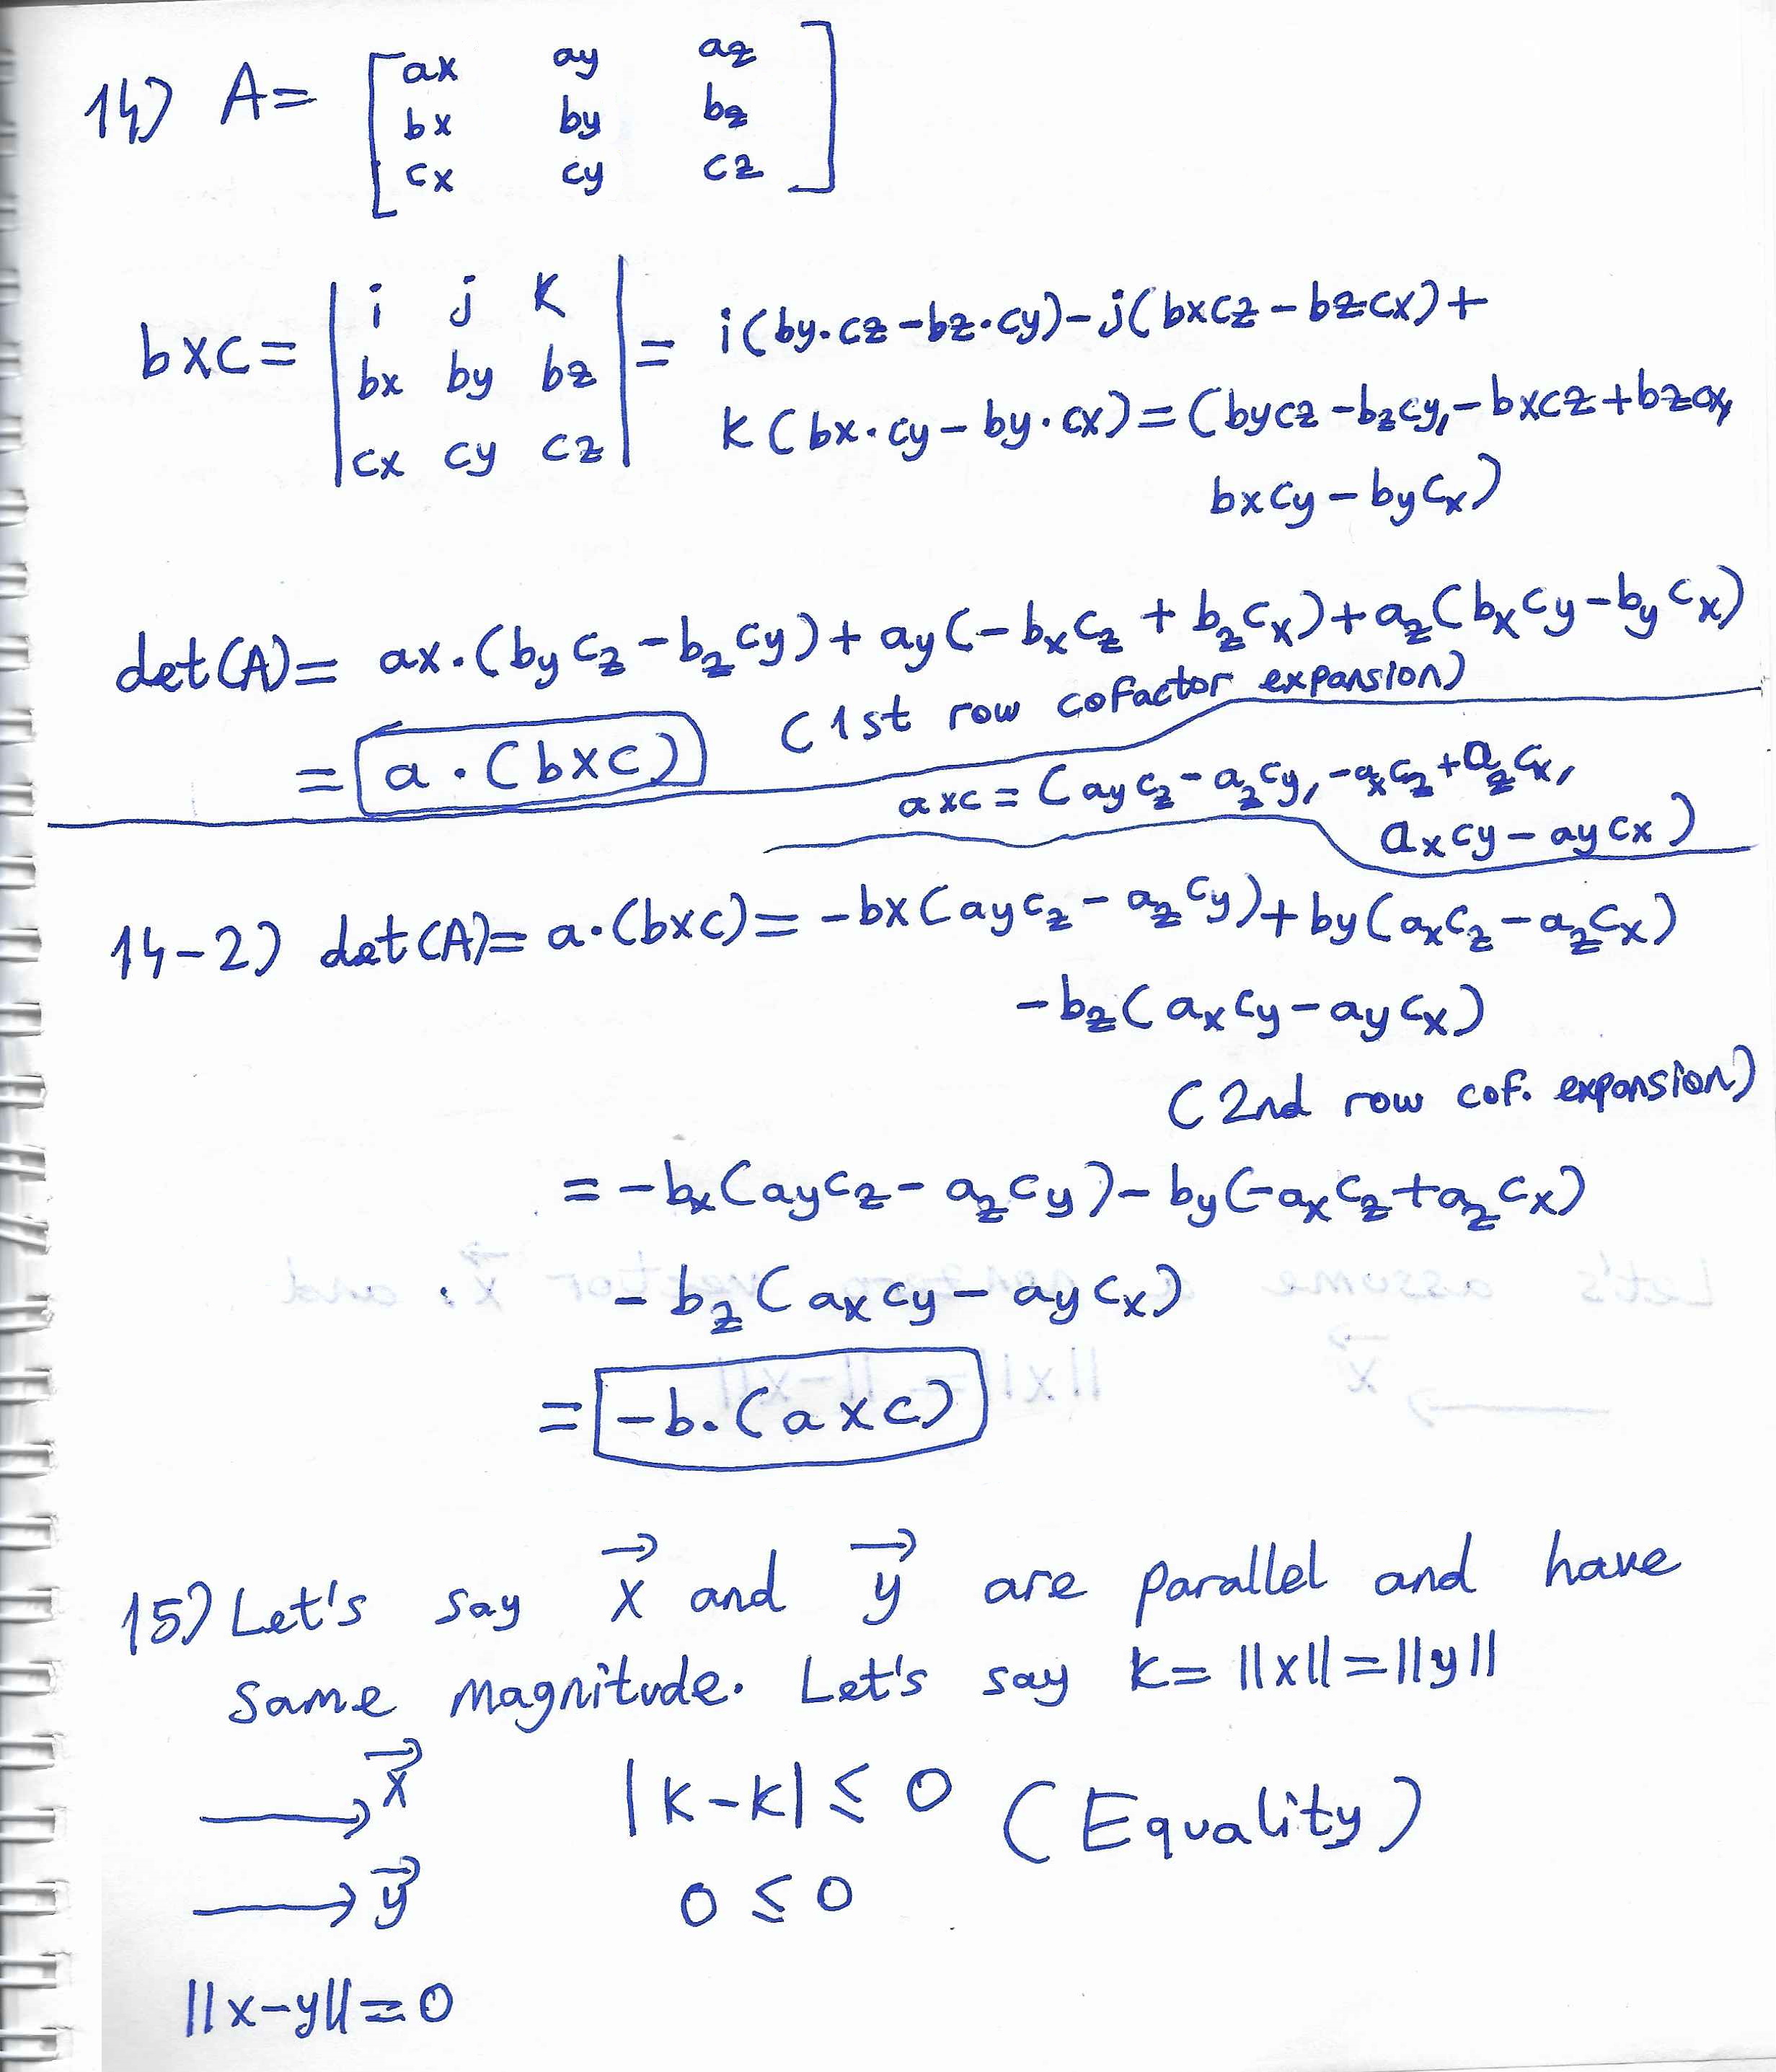 14) A= [ax ay az
bx by bz
cx cy cz]
bxc= |i j k
bx by bz
cx cy cz| = i(by.cz-bz.cy)-j(bxcz-bzcx)+
k(bx.cy-by.cx)=(bycz-bzcy,-bxcz+bzcx,
bxcy-bycx)
det(A)= ax.(bycz-bzcy)+ay(-bxcz+bzcx)+az(bxcy-bycx)
(1st row cofactor expansion)
= a.(bxc)
axc=(aycz-azcy,-axcz+azcx,
axcy-aycx)
14-2) det(A)= a.(bxc)= -bx(aycz-azcy)+by(axcz-azcx)
-bz(axcy-aycx)
(2nd row cof. expansion)
= -bx(aycz-azcy)-by(-axcz+azcx)
-bz(axcy-aycx)
= -b.(axc)
15) Let's say x⃗ and y⃗ are parallel and have
same magnitude. Let's say k=||x||=||y||
x⃗ |k-k| ≤ 0 (Equality)
y⃗ 0 ≤ 0
||x-y||=0